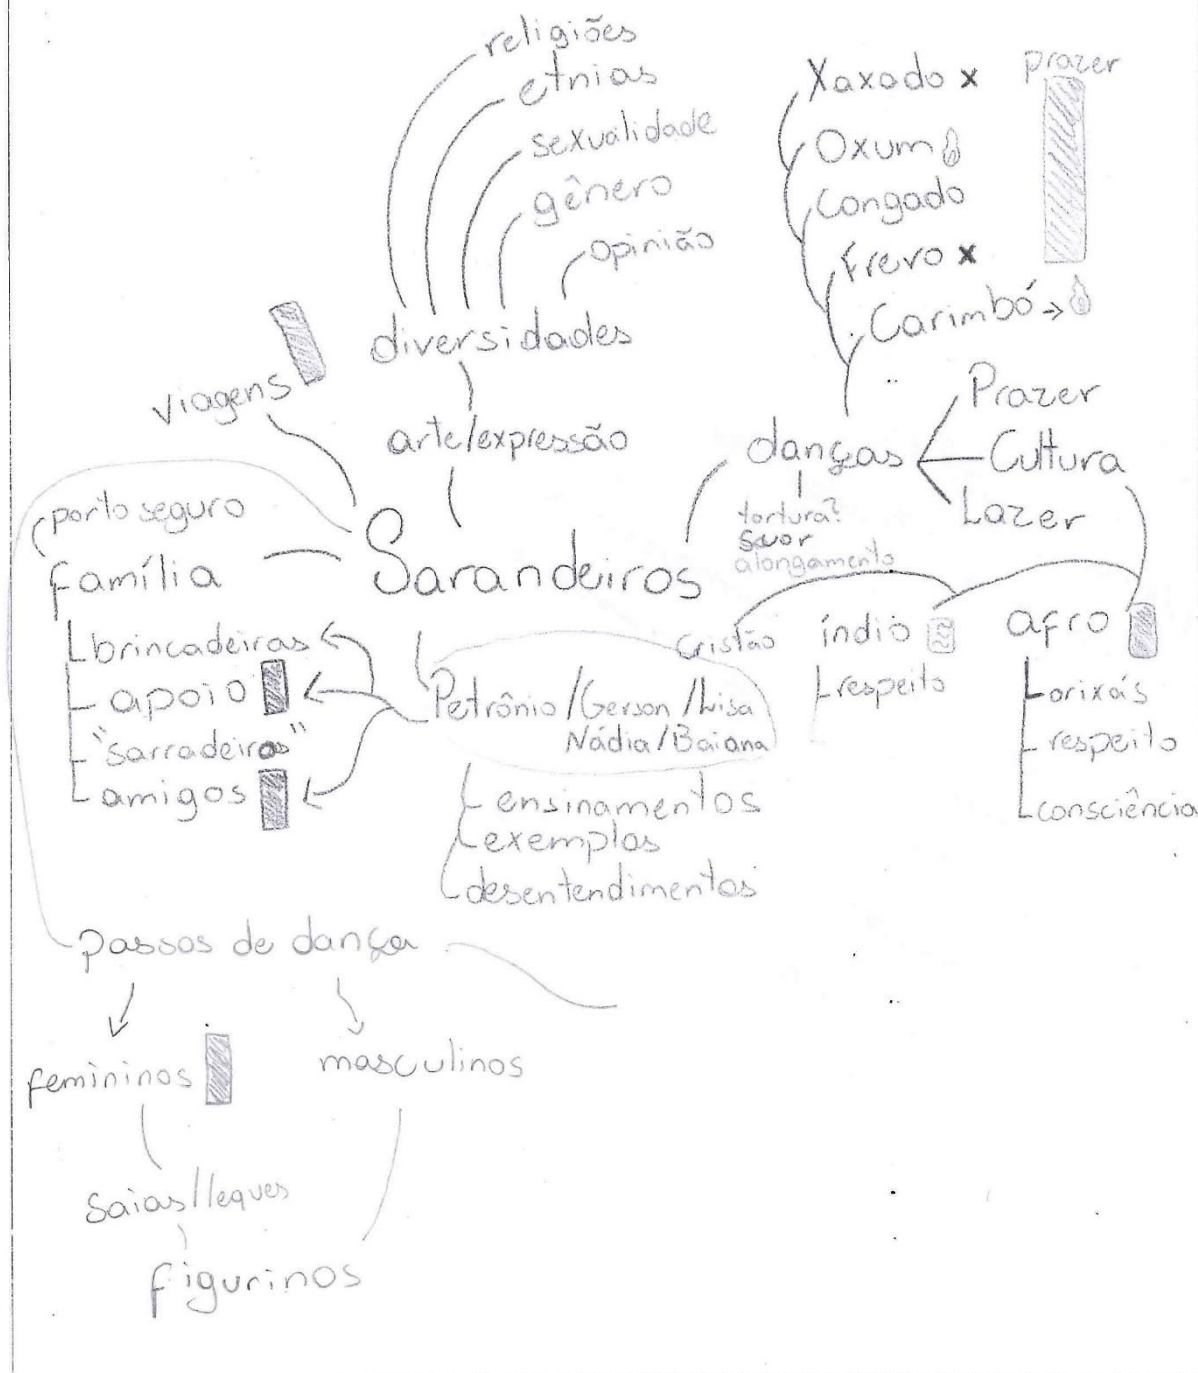 religiões
etnias
sexualidade
gênero
opinião
diversidades
arte/expressão
viagens
Xaxado x
Oxum
Congado
Frevo x
Carimbó →
prazer
danças
Prazer
Cultura
Lazer
tortura?
suor
alongamento
Sarandeiros
porto seguro
família
brincadeiras
apoio
"sarradeiros"
amigos
Petrônio/Gerson/Lisa
Nádia/Baiana
ensinamentos
exemplos
desentendimentos
cristão
índio
respeito
afro
orixás
respeito
consciência
passos de dança
femininos
masculinos
saias/leques
figurinos